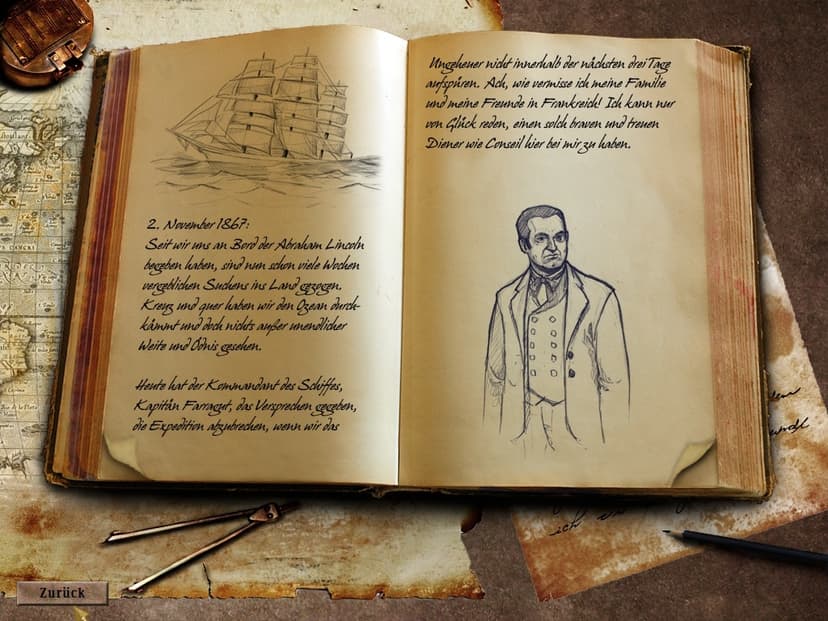 2. November 1867:
Seit wir uns an Bord der Abraham Lincoln
begeben haben, sind nun schon viele Wochen
vergeblichen Suchens ins Land gezogen.
Kreuz und quer haben wir den Ozean durch-
kämmt und doch nichts außer unendlicher
Weite und Ödnis gesehen.
Heute hat der Kommandant des Schiffes,
Kapitän Farragut, das Versprechen gegeben,
die Expedition abzubrechen, wenn wir das
Ungeheuer nicht innerhalb der nächsten drei Tage
aufspüren. Ach, wie vermisse ich meine Familie
und meine Freunde in Frankreich! Ich kann nur
von Glück reden, einen solch braven und treuen
Diener wie Conseil hier bei mir zu haben.
ich
Zurück